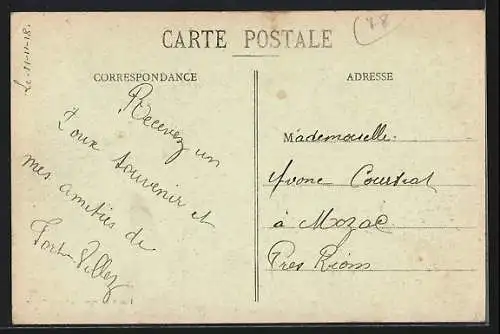 Le 11-11-18.
78
CARTE POSTALE
CORRESPONDANCE
ADRESSE
Recevez un
doux souvenir et
mes amitiés de
Port-Villez
Mademoiselle.
Yvone Courtial
à Mozac
Près Riom